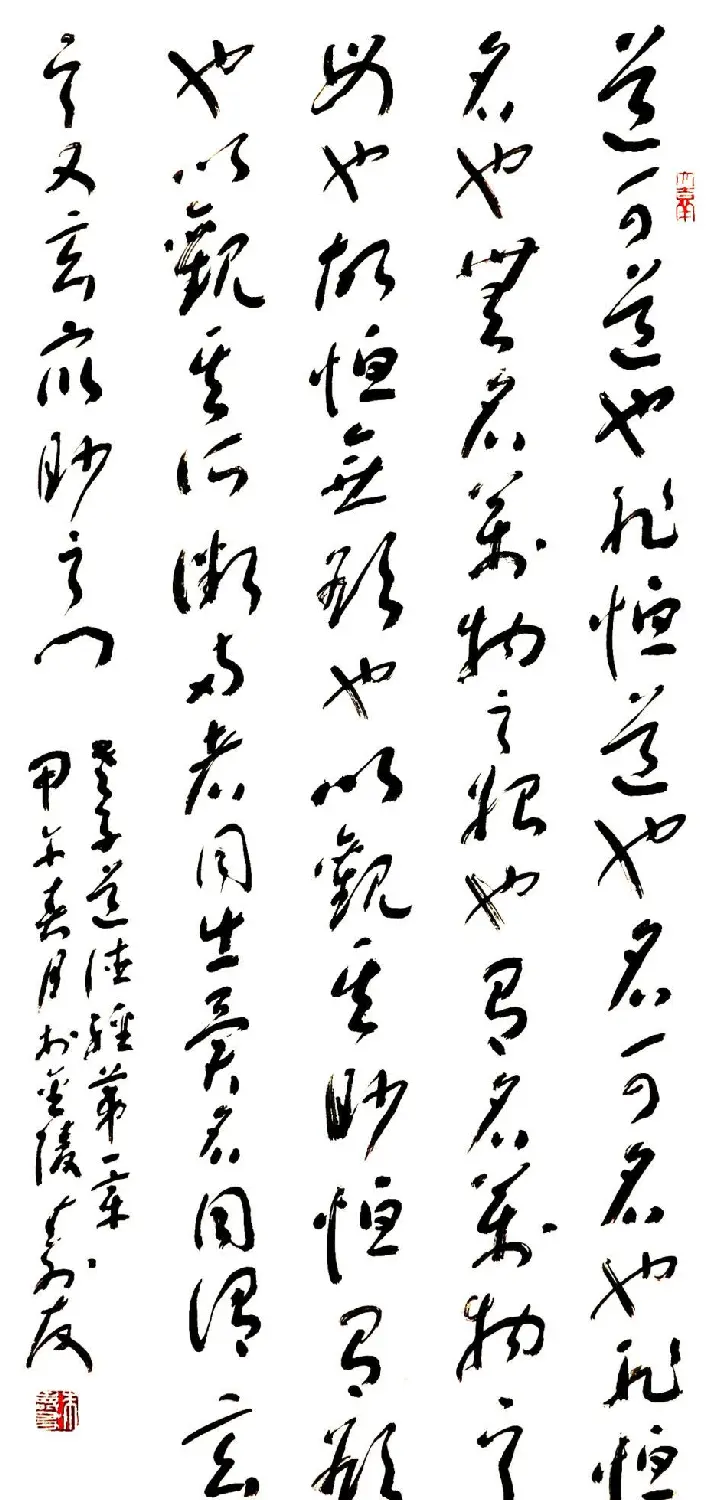 道可道也非恒道也名可名也非恒
名也無名萬物之始也有名萬物之
母也故恒無欲也以觀其眇恒有欲
也以觀其所徼兩者同出異名同謂玄
之又玄衆眇之門
老子道德經第一章
甲午春月於金陵壽友